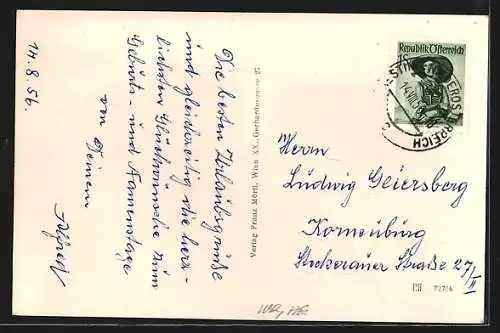 14.8.56.
Die besten Urlaubsgrüße
und gleichzeitig die herz-
lichsten Glückwünsche zum
Geburts- und Namenstage
von Deinem
Alfred
Verlag Franz Mörtl, Wien XX., Gerhardusgasse 25
Republik Österreich
Herrn
Ludwig Geiersberg
Korneuburg
Stockerauer Straße 27/II